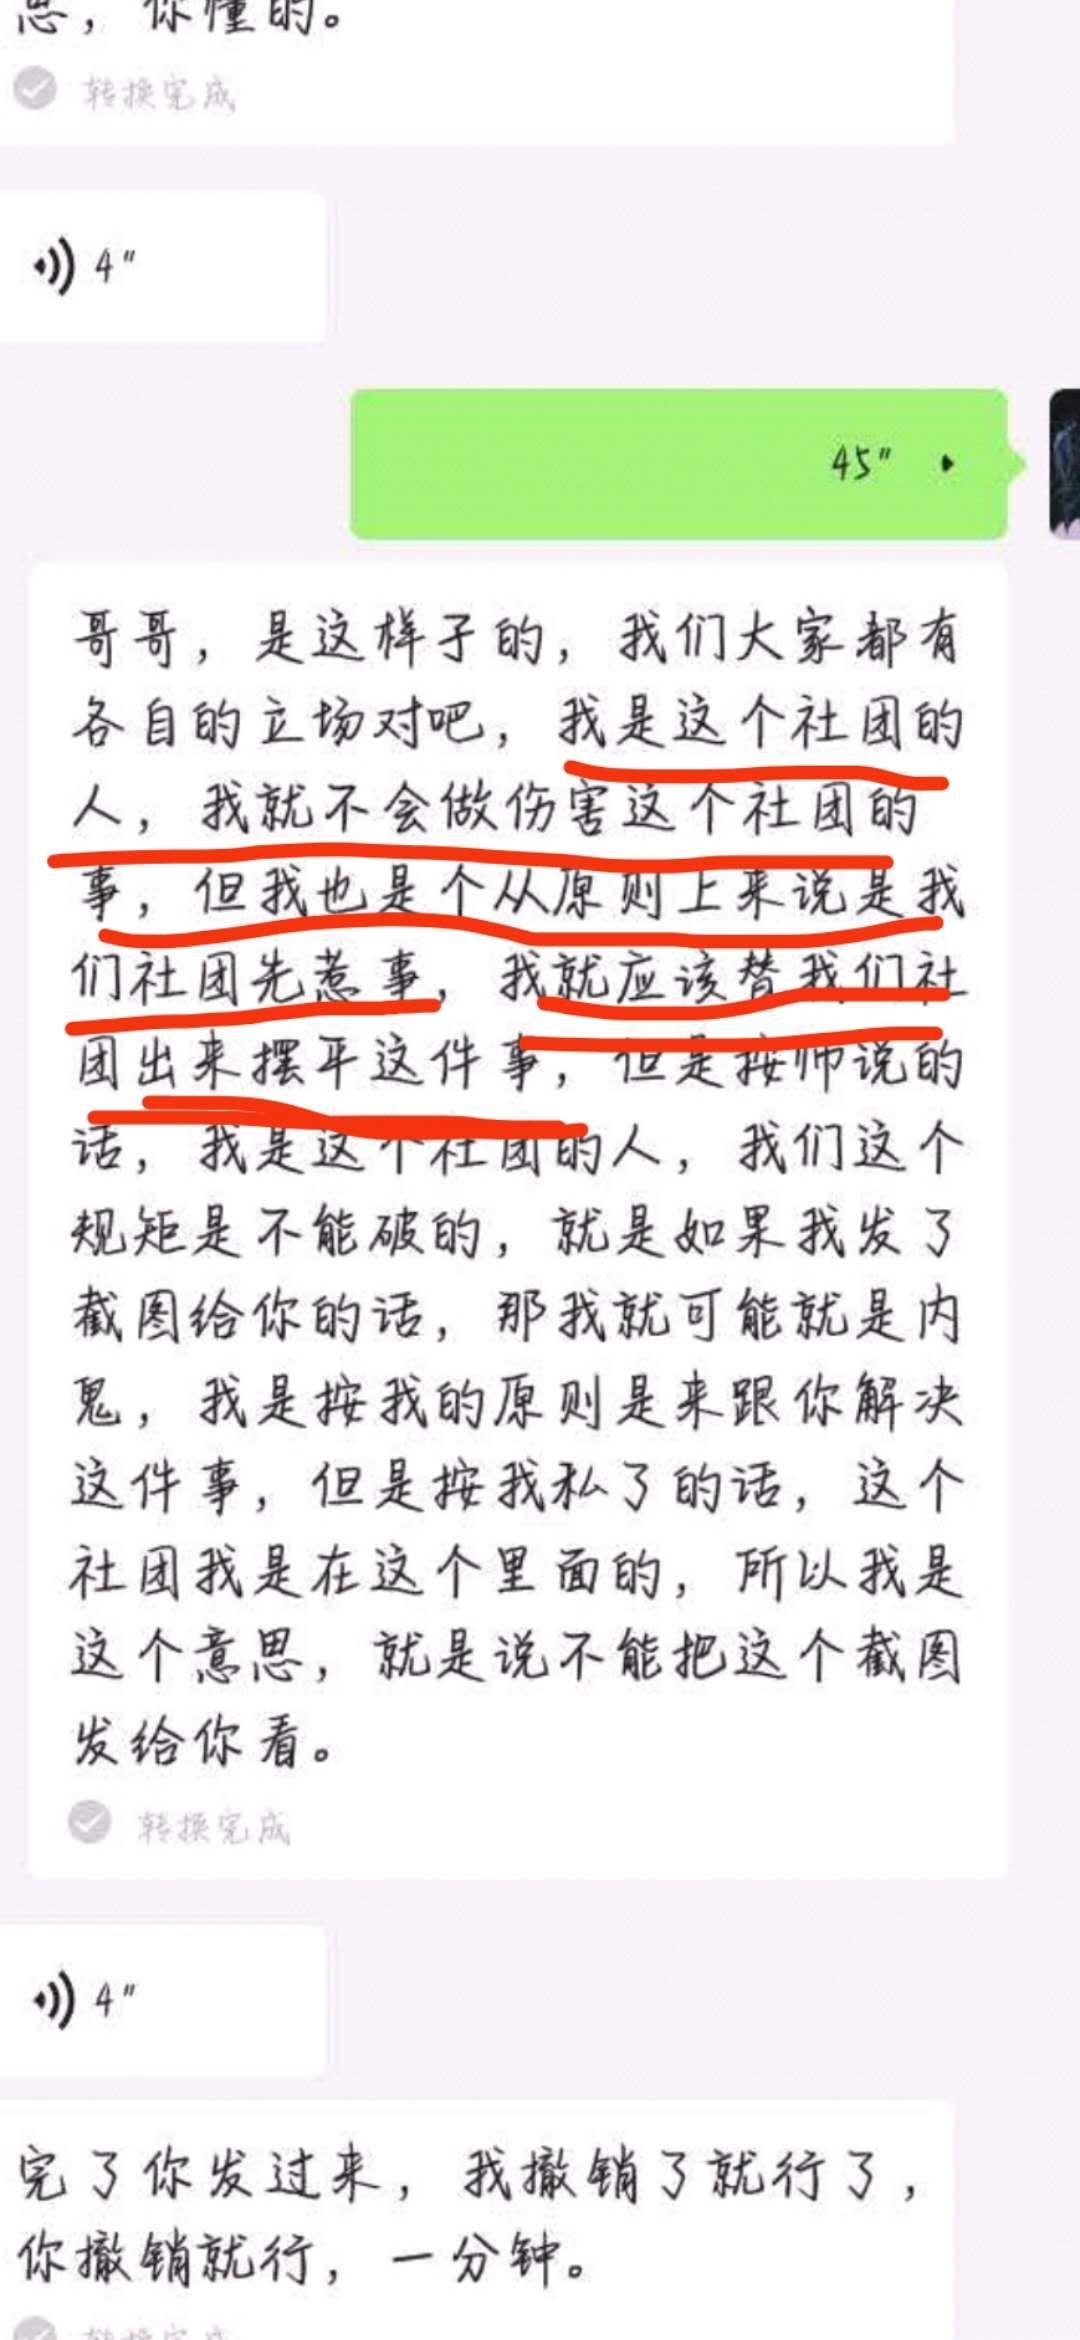 思，你懂的。
转换完成
4"
45"
哥哥，是这样子的，我们大家都有
各自的立场对吧，我是这个社团的
人，我就不会做伤害这个社团的
事，但我也是个从原则上来说是我
们社团先惹事，我就应该替我们社
团出来摆平这件事，但是按师说的
话，我是这个社团的人，我们这个
规矩是不能破的，就是如果我发了
截图给你的话，那我就可能就是内
鬼，我是按我的原则是来跟你解决
这件事，但是按我私了的话，这个
社团我是在这个里面的，所以我是
这个意思，就是说不能把这个截图
发给你看。
转换完成
4"
完了你发过来，我撤销了就行了，
你撤销就行，一分钟。
转换完成